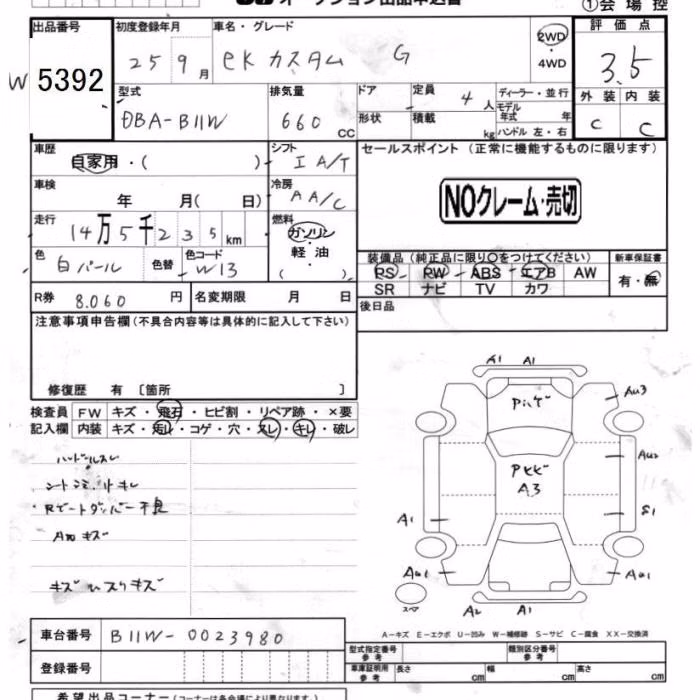 オークション出品申込書
①会場控
出品番号
5392
初度登録年月
25 9月
車名・グレード
eKカスタム G
2WD
・4WD
評価点
3.5
型式
DBA-B11W
排気量
660 CC
ドア
形状
定員
4人
積載
kg
ディーラー・並行
モデル年式 年
ハンドル 左・右
外装 内装
C C
車歴
自家用・( )
シフト
I A/T
車検
年 月( 日)
冷房
A A/C
走行
14万5千235km
燃料
ガソリン
軽油
( )
色
白パール
色替
色コード
W13
R券
8.060円
名変期限 月 日
セールスポイント(正常に機能するものに限ります)
NOクレーム・売切
装備品(純正品に限り○をつけてください)
PS PW ABS エアB AW
SR ナビ TV カワ
新車保証書
有・無
後日品
注意事項申告欄(不具合内容等は具体的に記入して下さい)
修復歴 有 〔箇所 〕
検査員記入欄
FW キズ・飛石・ヒビ割・リペア跡・×要
内装 キズ・汚れ・コゲ・穴・スレ・キレ・破レ
ハンドルスレ
シートシミ、リキレ
Rゲートダンパー不良
A内キズ
キズ、スリキズ
A1 A1
Au3
Au2
S1
Aa1
A3
A1
Aa1
A2 A1
スペア
A-キズ E-エクボ U-凹み W-補修跡 S-サビ C-腐食 XX-交換済
車台番号
B11W-0023980
登録番号
型式指定番号 参考
類別区分番号 参考
車庫証明用 参考
長さ cm 幅 cm 高さ cm
希望出品コーナー(コーナーは各会場により異なります。)